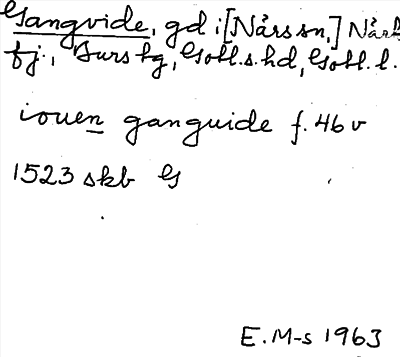 Gangvide, gd i [Närs sn,] Närk
fj., Burs tg, Gotl. s. hd, Gotl. l.
iouen ganguide f. 46 v
1523 skb G
E. M-s 1963